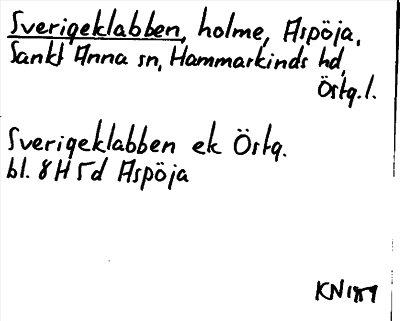 Sverigeklabben, holme, Aspöja,
Sankt Anna sn, Hammarkinds hd,
Östg.l.
Sverigeklabben ek Östg.
bl. 8H5d Aspöja
KN 1989